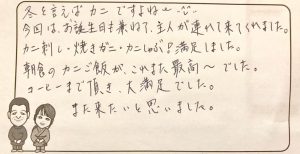 冬と言えばカニですよね〜^^
今回は、お誕生日も兼ねて、主人が連れて来てくれました。
カニ刺し・焼きガニ・カニしゃぶ!満足しました。
朝食のカニご飯が、これまた最高〜でした。
コーヒーまで頂き、大満足でした。
また来たいと思いました。